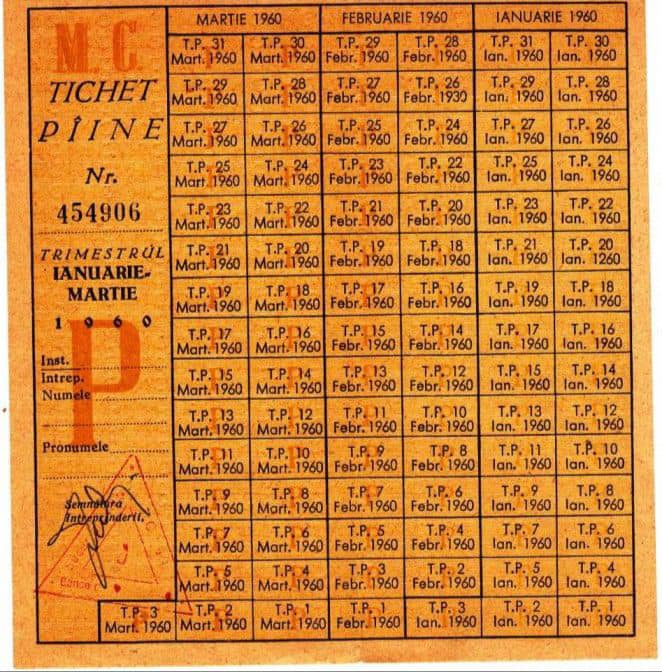 MARTIE 1960 FEBRUARIE 1960 IANUARIE 1960
M. C
TICHET
PÎINE
Nr.
454906
TRIMESTRUL
IANUARIE-
MARTIE
1960
P
Inst.
Intrep.
Numele
Pronumele
Semnatura
Intreprinderii,
T.P. 31 T.P. 30 T.P. 29 T.P. 28 T.P. 31 T.P. 30
Mart. 1960 Mart. 1960 Febr. 1960 Febr. 1960 Ian. 1960 Ian. 1960
T.P. 29 T.P. 28 T.P. 27 T.P. 26 T.P. 29 T.P. 28
Mart. 1960 Mart. 1960 Febr. 1960 Febr. 1930 Ian. 1960 Ian. 1960
T.P. 27 T.P. 26 T.P. 25 T.P. 24 T.P. 27 T.P. 26
Mart. 1960 Mart. 1960 Febr. 1960 Febr. 1960 Ian. 1960 Ian. 1960
T.P. 25 T.P. 24 T.P. 23 T.P. 22 T.P. 25 T.P. 24
Mart. 1960 Mart. 1960 Febr. 1960 Febr. 1960 Ian. 1960 Ian. 1960
T.P. 23 T.P. 22 T.P. 21 T.P. 20 T.P. 23 T.P. 22
Mart. 1960 Mart. 1960 Febr. 1960 Febr. 1960 Ian. 1960 Ian. 1960
T.P. 21 T.P. 20 T.P. 19 T.P. 18 T.P. 21 T.P. 20
Mart. 1960 Mart. 1960 Febr. 1960 Febr. 1960 Ian. 1960 Ian. 1260
T.P. 19 T.P. 18 T.P. 17 T.P. 16 T.P. 19 T.P. 18
Mart. 1960 Mart. 1960 Febr. 1960 Febr. 1960 Ian. 1960 Ian. 1960
T.P. 17 T.P. 16 T.P. 15 T.P. 14 T.P. 17 T.P. 16
Mart. 1960 Mart. 1960 Febr. 1960 Febr. 1960 Ian. 1960 Ian. 1960
T.P. 15 T.P. 14 T.P. 13 T.P. 12 T.P. 15 T.P. 14
Mart. 1960 Mart. 1960 Febr. 1960 Febr. 1960 Ian. 1960 Ian. 1960
T.P. 13 T.P. 12 T.P. 11 T.P. 10 T.P. 13 T.P. 12
Mart. 1960 Mart. 1960 Febr. 1960 Febr. 1960 Ian. 1960 Ian. 1960
T.P. 11 T.P. 10 T.P. 9 T.P. 8 T.P. 11 T.P. 10
Mart. 1960 Mart. 1960 Febr. 1960 Febr. 1960 Ian. 1960 Ian. 1960
T.P. 9 T.P. 8 T.P. 7 T.P. 6 T.P. 9 T.P. 8
Mart. 1960 Mart. 1960 Febr. 1960 Febr. 1960 Ian. 1960 Ian. 1960
T.P. 7 T.P. 6 T.P. 5 T.P. 4 T.P. 7 T.P. 6
Mart. 1960 Mart. 1960 Febr. 1960 Febr. 1960 Ian. 1960 Ian. 1960
T.P. 5 T.P. 4 T.P. 3 T.P. 2 T.P. 5 T.P. 4
Mart. 1960 Mart. 1960 Febr. 1960 Febr. 1960 Ian. 1960 Ian. 1960
T.P. 3 T.P. 2 T.P. 1 T.P. 1 T.P. 3 T.P. 2 T.P. 1
Mart. 1960 Mart. 1960 Mart. 1960 Febr. 1960 Ian. 1960 Ian. 1960 Ian. 1960